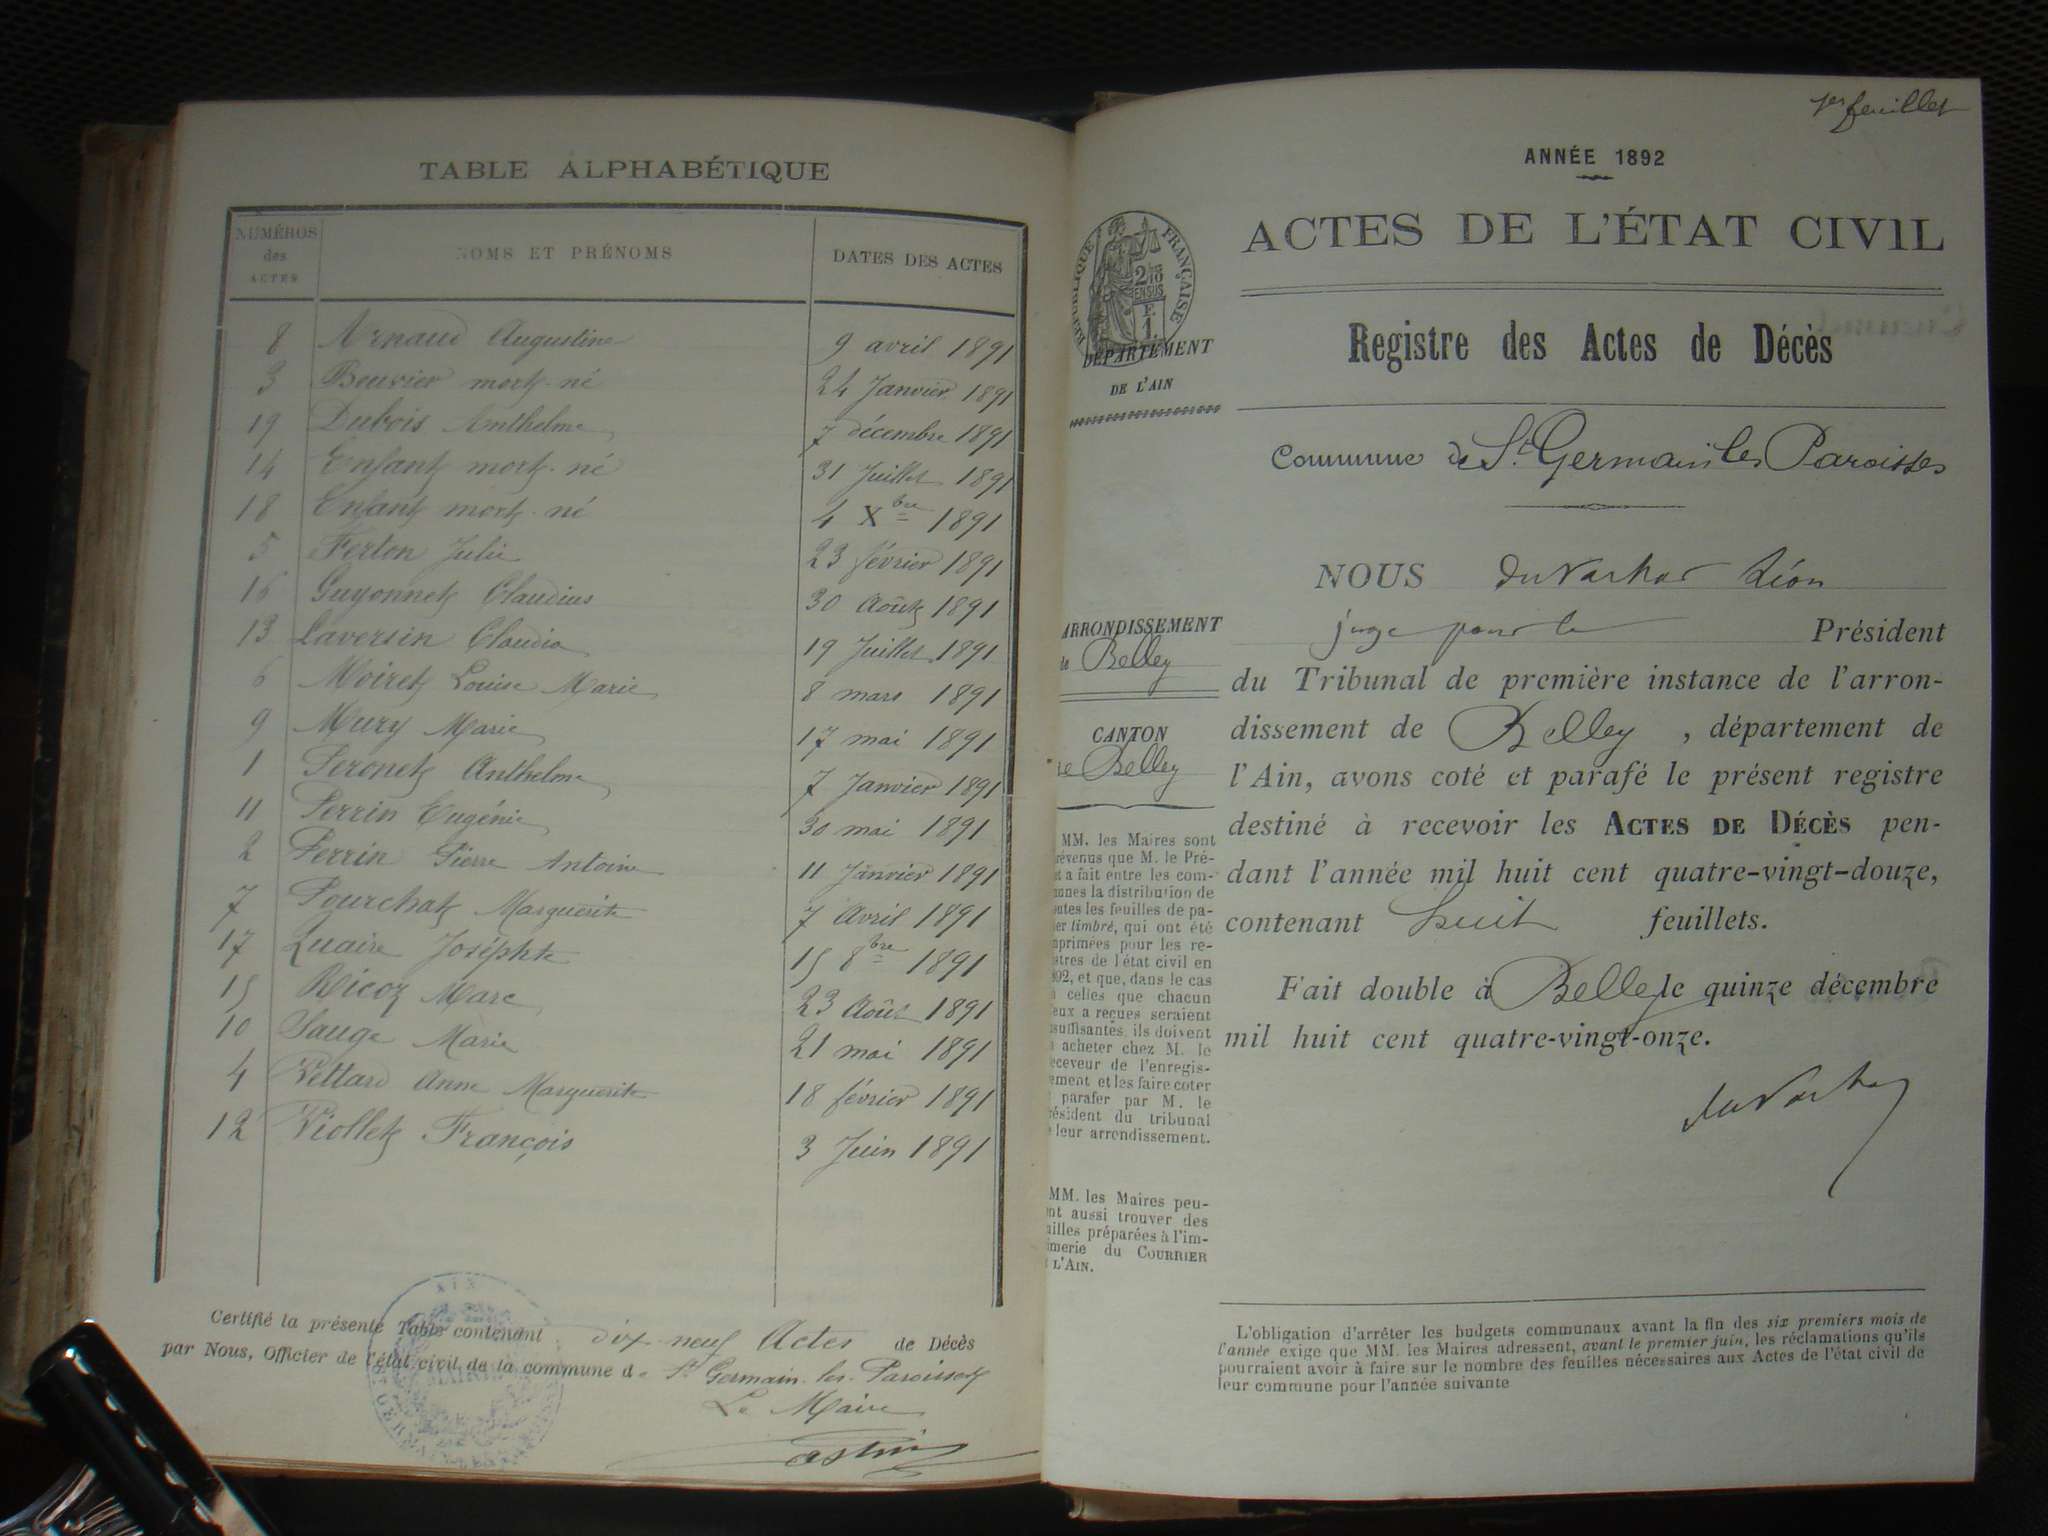 TABLE ALPHABÉTIQUE
NUMÉROS des ACTES NOMS ET PRÉNOMS DATES DES ACTES
8 Arnaud Augustine 9 avril 1891
3 Bouvier mort-né 24 Janvier 1891
19 Dubois Anthelme 7 décembre 1891
14 Enfant mort-né 31 Juillet 1891
18 Enfant mort-né 4 Xbre 1891
5 Ferton Julie 23 février 1891
16 Guyonnet Claudius 30 Août 1891
13 Laversin Claudia 19 Juillet 1891
6 Moiret Louise Marie 8 mars 1891
9 Mury Marie 17 mai 1891
1 Peronet Anthelme 7 Janvier 1891
11 Perrin Eugénie 30 mai 1891
2 Perrin Pierre Antoine 11 Janvier 1891
7 Pourchat Marguerite 7 Avril 1891
17 Quaire Josephte 15 8bre 1891
15 Ricoz Marc 23 Août 1891
10 Sauge Marie 21 mai 1891
4 Vettard Anne Marguerite 18 février 1891
12 Viollet François 3 Juin 1891
Certifié la présente Table contenant dix-neuf Actes de Décès
par Nous, Officier de l'état civil de la commune de St Germain-les-Paroisses
Le Maire
1er feuillet
ANNÉE 1892
ACTES DE L'ÉTAT CIVIL
RÉPUBLIQUE FRANÇAISE
DÉPARTEMENT
DE L'AIN
Registre des Actes de Décès
Commune de St. Germain les Paroisses
ARRONDISSEMENT
de Belley
CANTON
de Belley
MM. les Maires sont
prévenus que M. le Pré-
et a fait entre les com-
munes la distribution de
toutes les feuilles de pa-
pier timbré, qui ont été
imprimées pour les re-
gistres de l'état civil en
1892, et que, dans le cas
où celles que chacun
d'eux a reçues seraient
insuffisantes, ils doivent
acheter chez M. le
receveur de l'enregis-
ement et les faire coter
parafer par M. le
président du tribunal
leur arrondissement.
MM. les Maires peu-
vent aussi trouver des
feuilles préparées à l'im-
primerie du COURRIER
L'AIN.
NOUS Léon
juge pour le Président
du Tribunal de première instance de l'arron-
dissement de Belley, département de
l'Ain, avons coté et parafé le présent registre
destiné à recevoir les ACTES DE DÉCÈS pen-
dant l'année mil huit cent quatre-vingt-douze,
contenant huit feuillets.
Fait double à Belley le quinze décembre
mil huit cent quatre-vingt-onze.
L'obligation d'arrêter les budgets communaux avant la fin des six premiers mois de
l'année exige que MM. les Maires adressent, avant le premier juin, les réclamations qu'ils
pourraient avoir à faire sur le nombre des feuilles nécessaires aux Actes de l'état civil de
leur commune pour l'année suivante